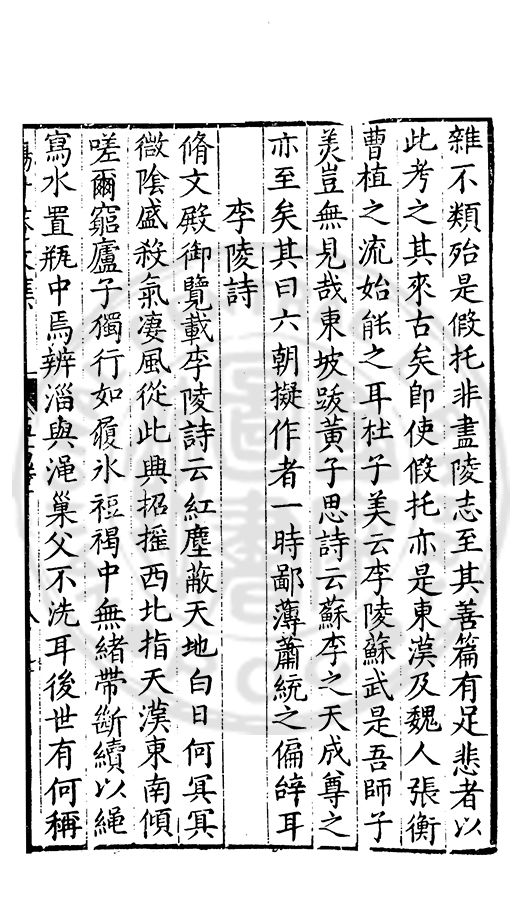 雜不類殆是假托非盡陵志至其善篇有足悲者以
此考之其來古矣卽使假托亦是東漢及魏人張衡
曹植之流始能之耳杜子美云李陵蘇武是吾師子
美豈無見哉東坡跋黃子思詩云蘇李之天成尊之
亦至矣其曰六朝擬作者一時鄙薄蕭統之偏辭耳
李陵詩
脩文殿御覽載李陵詩云紅塵蔽天地白日何冥冥
微陰盛殺氣凄風從此興招搖西北指天漢東南傾
嗟爾窮廬子獨行如履氷裋褐中無緒帶斷續以繩
寫水置瓶中焉辨淄與澠巢父不洗耳後世有何稱